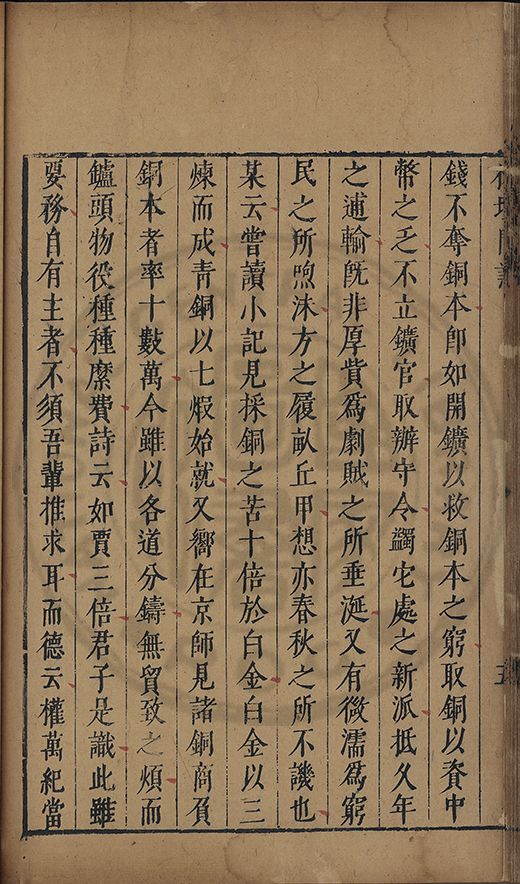 錢不奪銅本卽如開鑛以救銅本之窮取銅以資中
幣之乏不立鑛官取辦守令蠲宅處之新派抵久年
之逋輸旣非厚貲爲劇賊之所垂涎又有微濡爲窮
民之所喣沬方之履畝丘甲想亦春秋之所不譏也
某云嘗讀小記見採銅之苦十倍於白金白金以三
煉而成青銅以七煅始就又嚮在京師見諸銅商負
銅本者率十數萬今雖以各道分鑄無貿致之煩而
鑪頭物役種種縻費詩云如賈三倍君子是識此雖
要務自有主者不須吾輩推求耳而德云權萬紀當